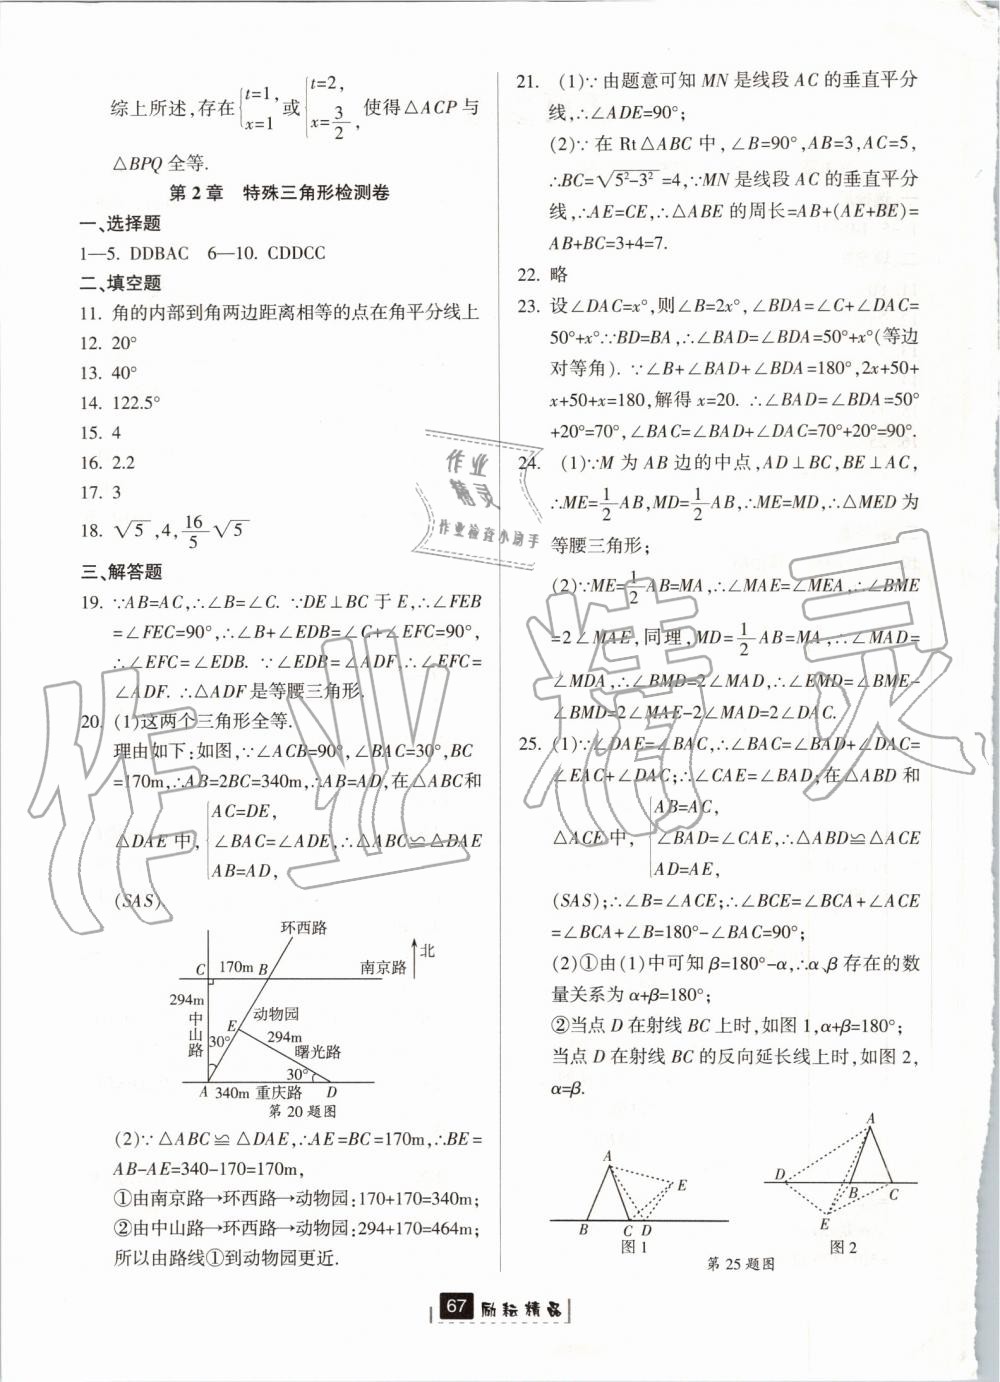 综上所述,存在{t=1, x=1 或{t=2, x=3/2, 使得△ACP与
△BPQ全等.
第2章 特殊三角形检测卷
一、选择题
1—5. DDBAC 6—10. CDDCC
二、填空题
11. 角的内部到角两边距离相等的点在角平分线上
12. 20°
13. 40°
14. 122.5°
15. 4
16. 2.2
17. 3
18. √5,4,16/5√5
三、解答题
19. ∵AB=AC,∴∠B=∠C. ∵DE⊥BC于E,∴∠FEB
=∠FEC=90°,∴∠B+∠EDB=∠C+∠EFC=90°,
∴∠EFC=∠EDB. ∵∠EDB=∠ADF∴∠EFC=
∠ADF. ∴△ADF是等腰三角形.
20. (1)这两个三角形全等.
理由如下:如图,∵∠ACB=90°,∠BAC=30°,BC
=170m,∴AB=2BC=340m,∴AB=AD,在△ABC和
△DAE中,{AC=DE, ∠BAC=∠ADE, AB=AD, ∴△ABC≌△DAE
(SAS)
环西路
北
C 170m B 南京路
294m
中山路
E 动物园
30° 294m
曙光路
30°
A 340m 重庆路 D
第20题图
(2)∵△ABC≌△DAE,∴AE=BC=170m,∴BE=
AB-AE=340-170=170m,
①由南京路→环西路→动物园:170+170=340m;
②由中山路→环西路→动物园:294+170=464m;
所以由路线①到动物园更近.
21. (1)∵由题意可知MN是线段AC的垂直平分
线,∴∠ADE=90°;
(2)∵在Rt△ABC中,∠B=90°,AB=3,AC=5,
∴BC=√5²-3²=4,∵MN是线段AC的垂直平分
线,∴AE=CE,∴△ABE的周长=AB+(AE+BE)=
AB+BC=3+4=7.
22. 略
23. 设∠DAC=x°,则∠B=2x°,∠BDA=∠C+∠DAC=
50°+x°∵BD=BA,∴∠BAD=∠BDA=50°+x°(等边
对等角). ∵∠B+∠BAD+∠BDA=180°,2x+50+
x+50+x=180,解得x=20. ∴∠BAD=∠BDA=50°
+20°=70°,∠BAC=∠BAD+∠DAC=70°+20°=90°.
24. (1)∵M为AB边的中点,AD⊥BC,BE⊥AC,
∴ME=1/2AB,MD=1/2AB,∴ME=MD,∴△MED为
等腰三角形;
(2)∵ME=1/2AB=MA,∴∠MAE=∠MEA,∴∠BME
=2∠MAE,同理,MD=1/2AB=MA,∴∠MAD=
∠MDA,∴∠BMD=2∠MAD,∴∠EMD=∠BME-
∠BMD=2∠MAE-2∠MAD=2∠DAC.
25. (1)∵∠DAE=∠BAC,∴∠BAC=∠BAD+∠DAC=
∠EAC+∠DAC;∴∠CAE=∠BAD;在△ABD和
△ACE中,{AB=AC, ∠BAD=∠CAE, AD=AE, ∴△ABD≌△ACE
(SAS);∴∠B=∠ACE;∴∠BCE=∠BCA+∠ACE
=∠BCA+∠B=180°-∠BAC=90°;
(2)①由(1)中可知β=180°-α,∴α、β存在的数
量关系为α+β=180°;
②当点D在射线BC上时,如图1,α+β=180°;
当点D在射线BC的反向延长线上时,如图2,
α=β.
A E B C D
图1
A D B C E
图2
第25题图
67 励耘精品
作业精灵
作业检查小助手
作业精灵